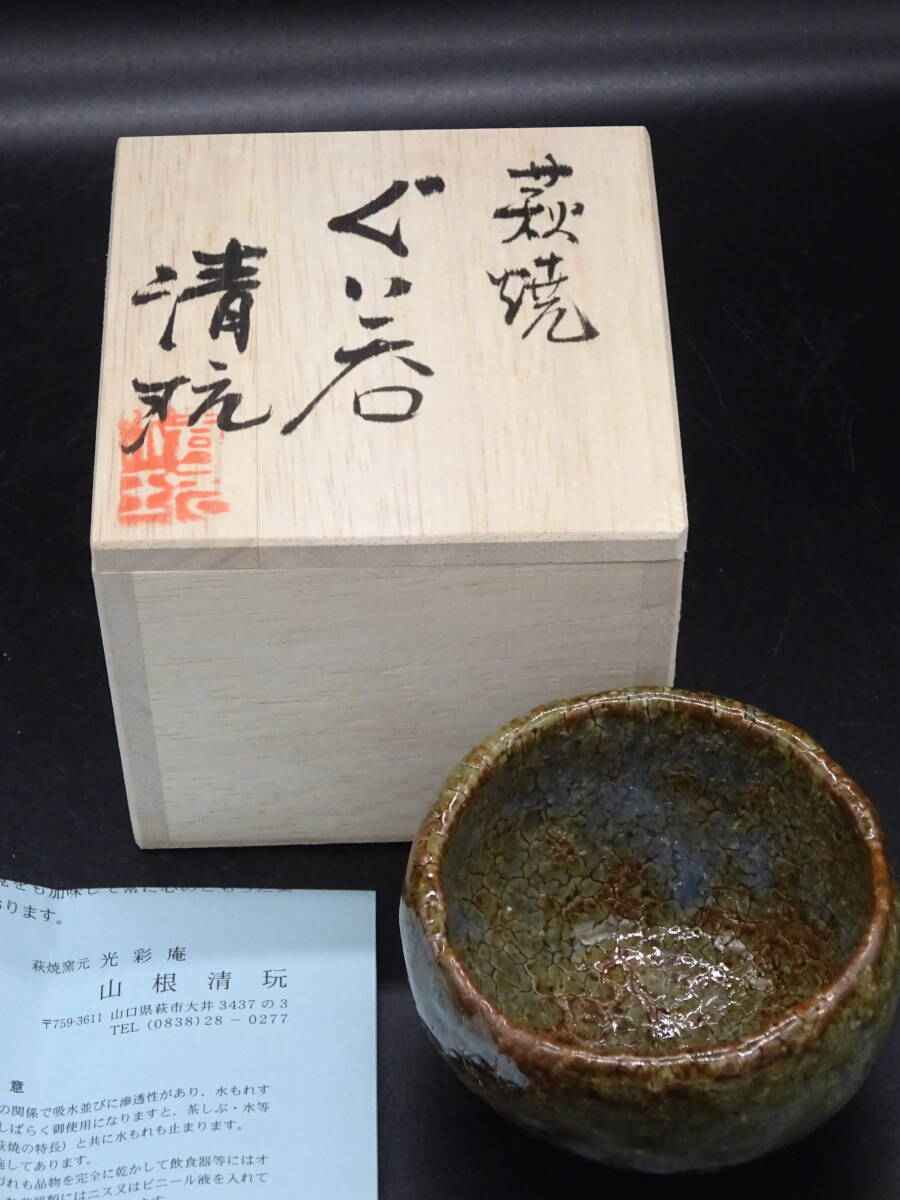 萩焼
ぐい呑
清玩
をも加味して常に心のこもった
ります。
萩焼窯元 光彩庵
山根清玩
〒759-3611 山口県萩市大井3437の3
TEL (0838) 28-0277
意
の関係で吸水並びに滲透性があり、水もれす
しばらく御使用になりますと、茶しぶ・水等
萩焼の特長）と共に水もれも止まります。
施してあります。
づれも品物を完全に乾かして飲食器等にはオ
器類にはニス又はビニール液を入れて